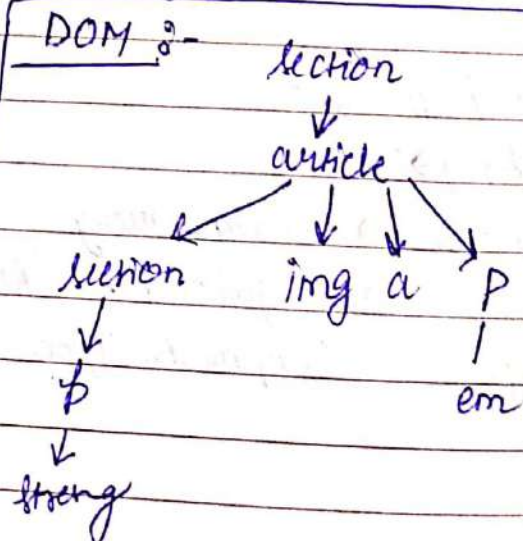 DOM :-
section
article
section img a p
p em
strong